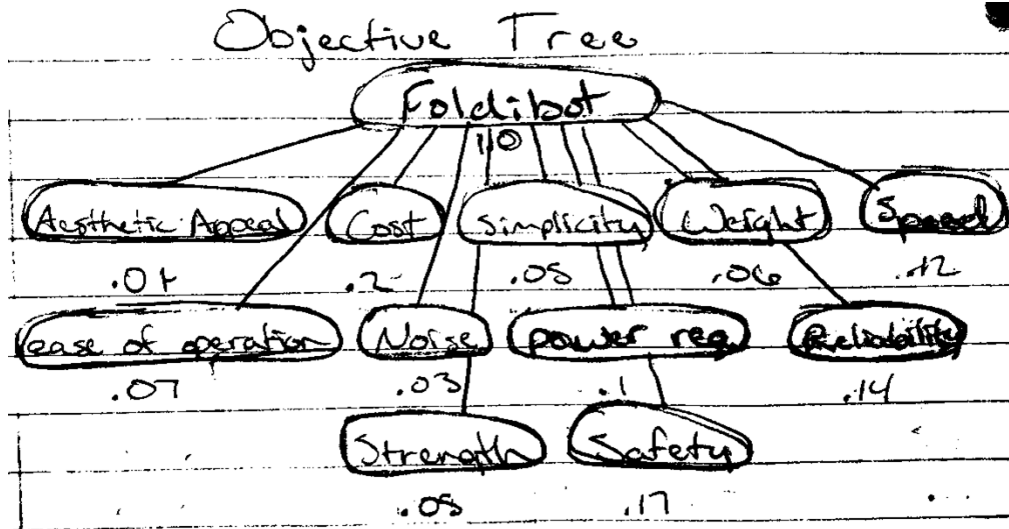 Objective Tree
Foldibot
1.0
Aesthetic Appeal Cost Simplicity Weight Speed
.01 .2 .05 .06 .12
ease of operation Noise power req Reliability
.07 .03 .1 .14
Strength Safety
.05 .17